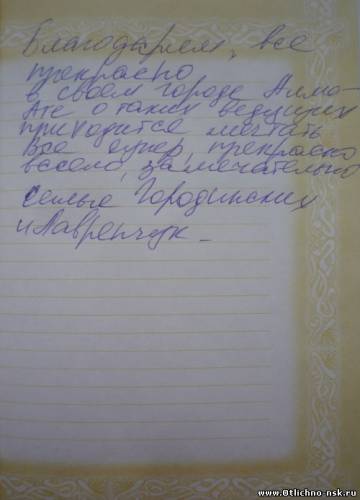 Благодарем, все
прекрасно
в своем городе Алма-
Ате о таких ведущих
приходится мечтать
Все супер, прекрасно
весело, замечательно
семье Городинских
и Лавренчук.
www.Otlichno-nsk.ru